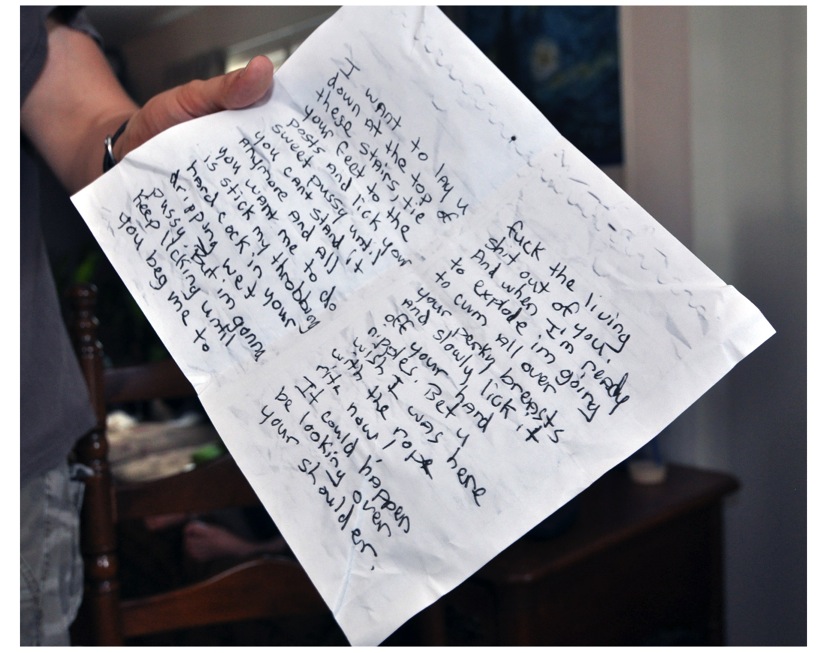 I want to lay u
down at the top of
these stairs tie
your feet to the
posts and lick your
sweet pussy until
you cant stand it
anymore and all
you want me to do
is stick my throbbing
hard cock in your
dripping wet
pussy. But im gonna
keep licking until
you beg me to
fuck the living
shit out of you.
And when I'm ready
to explode im going
to cum all over
your perky breasts
and slowly lick it
off your hard
nipples. Bet u
wish I was here
with the rope
rite now!
It could happen
be looking over
your shoulder.